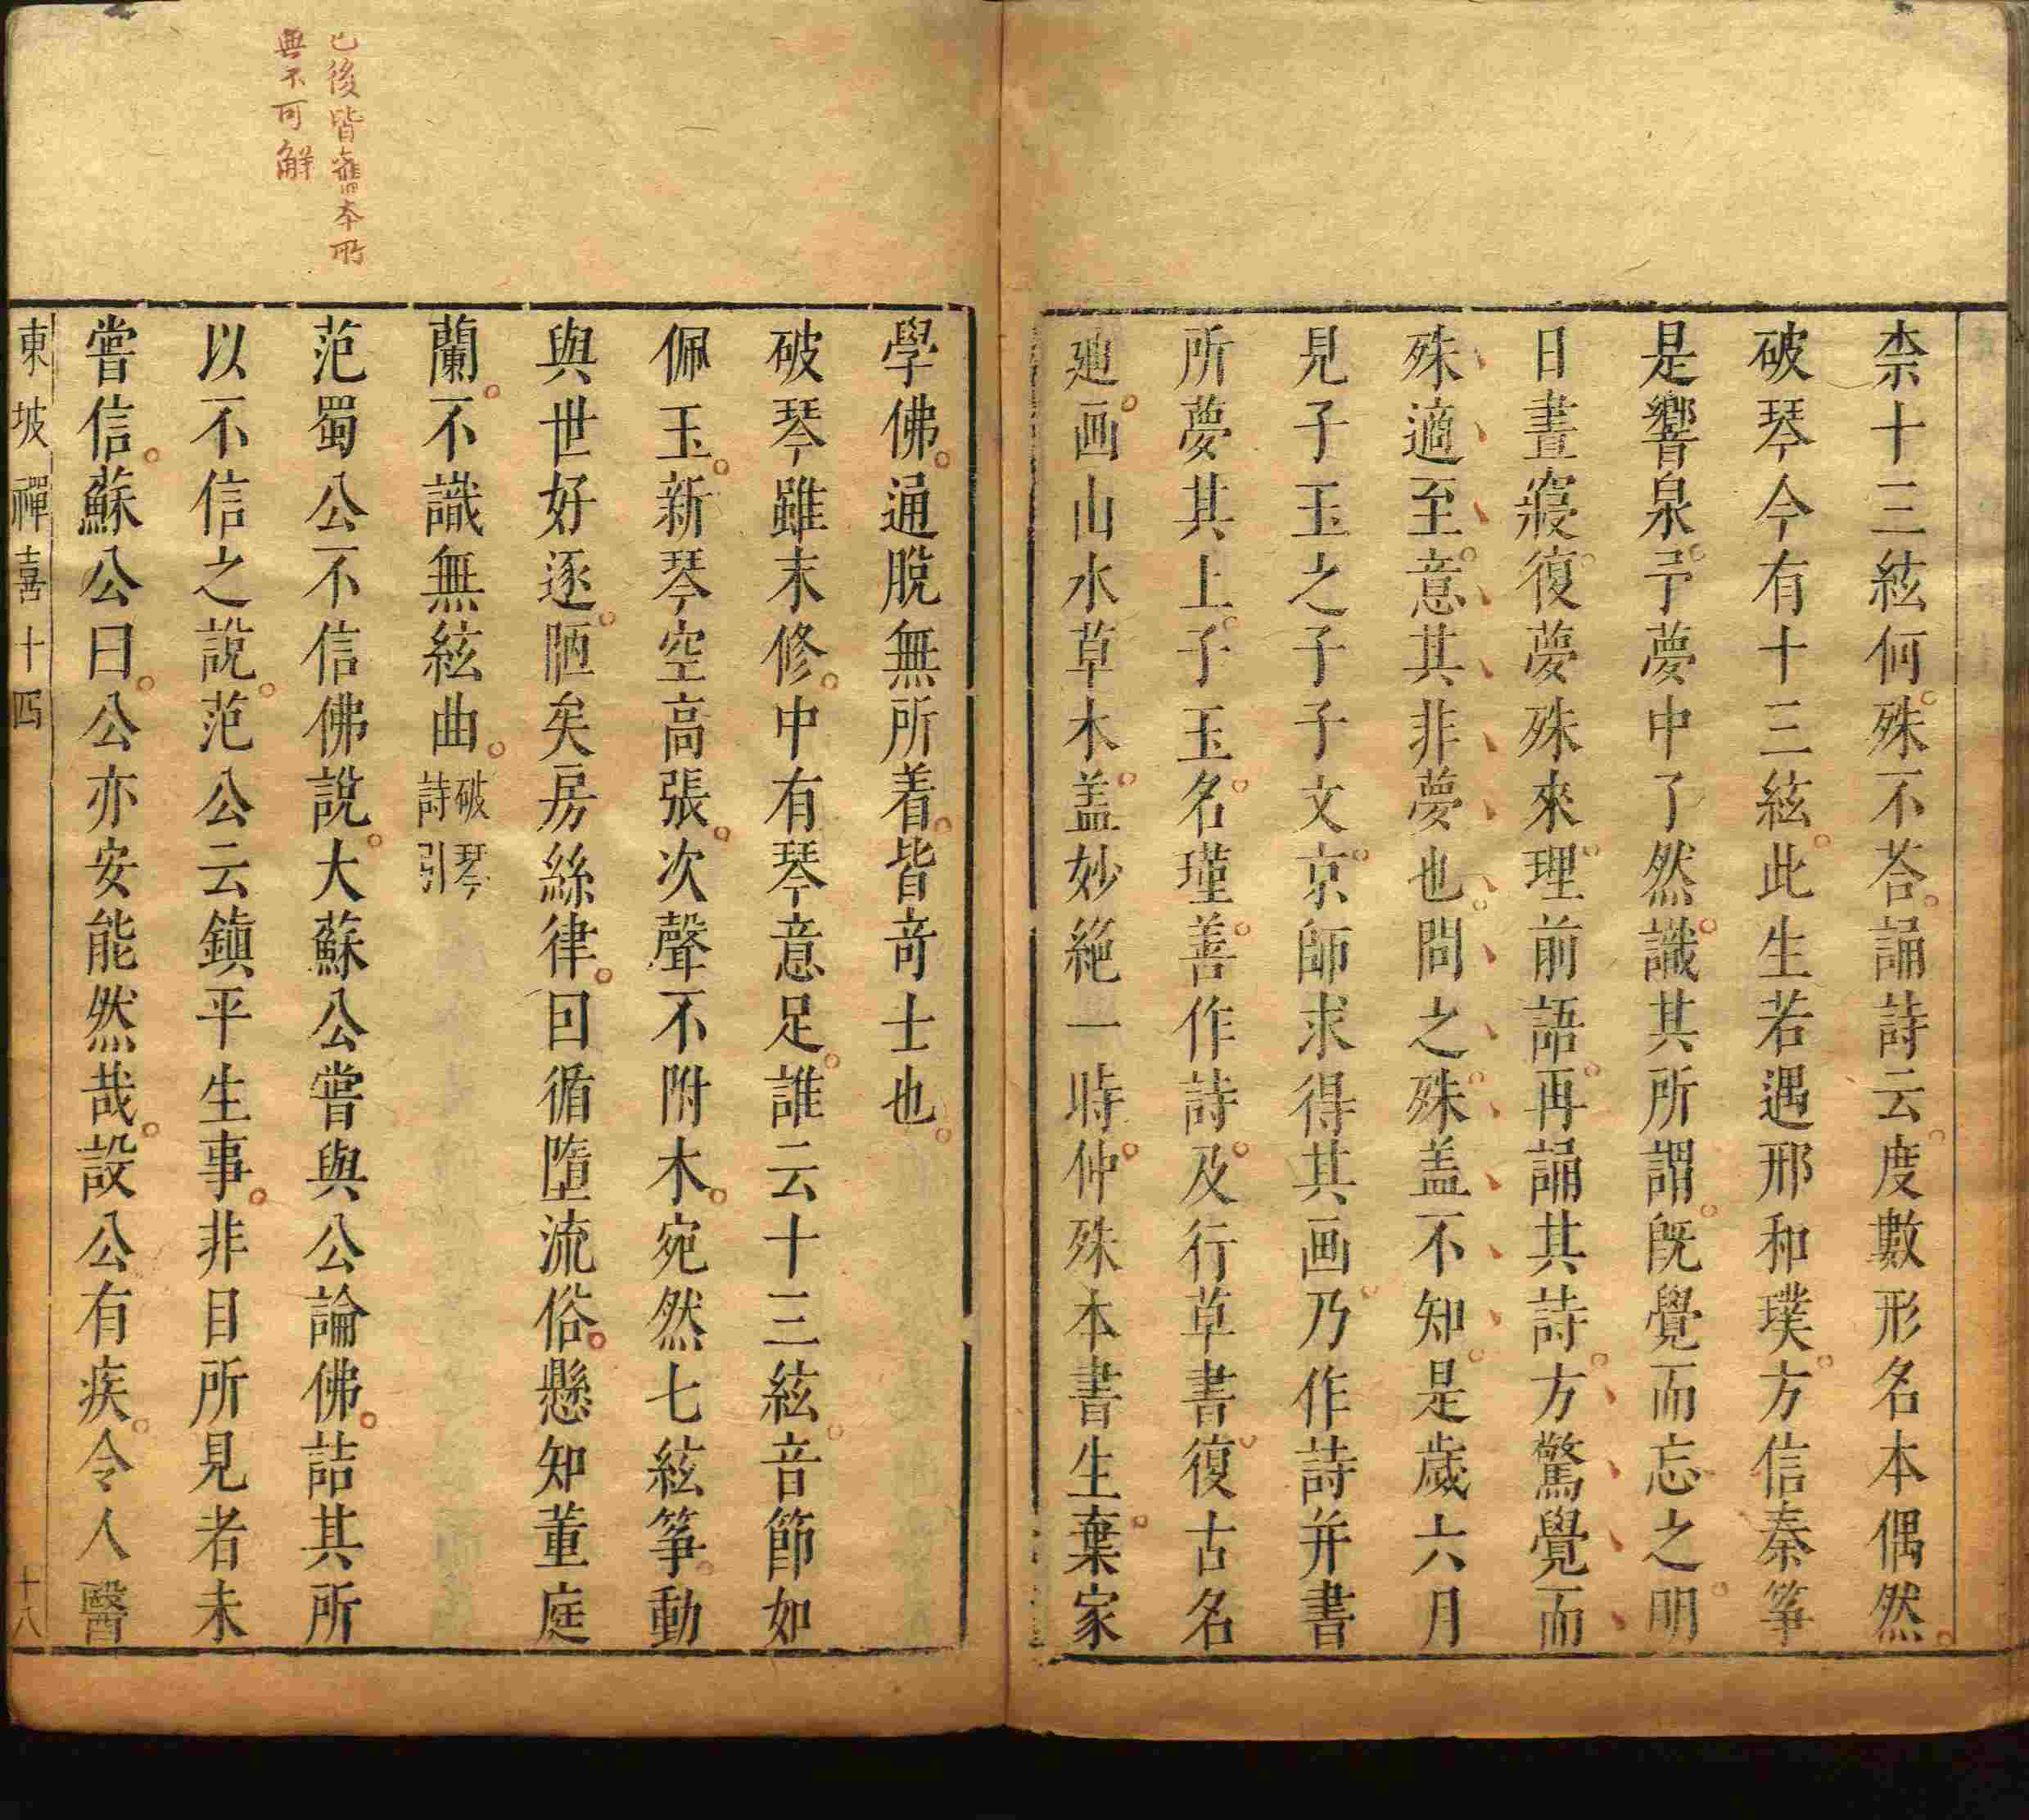 柰十三絃何殊不荅誦詩云度數形名本偶然
破琴今有十三絃此生若遇邢和璞方信秦箏
是響泉予夢中了然識其所謂旣覺而忘之明
日晝寢復夢殊來理前語再誦其詩方驚覺而
殊適至意其非夢也問之殊盖不知是歲六月
見子玉之子子文京師求得其画乃作詩并書
所夢其上子玉名瑾善作詩及行草書復古名
廸画山水草木盖妙絶一時仲殊本書生棄家
學佛通脫無所着皆竒士也
破琴雖未修中有琴意足誰云十三絃音節如
佩玉新琴空高張次聲不附木宛然七絃箏動
與世好逐陋矣房絲律囙循墮流俗懸知董庭
蘭不識無絃曲破琴
詩引
范蜀公不信佛說大蘇公嘗與公論佛詰其所
以不信之說范公云鎭平生事非目所見者未
嘗信蘇公曰公亦安能然哉設公有疾令人醫
東坡禪喜十四
十八
已後皆舊本所
無不可解